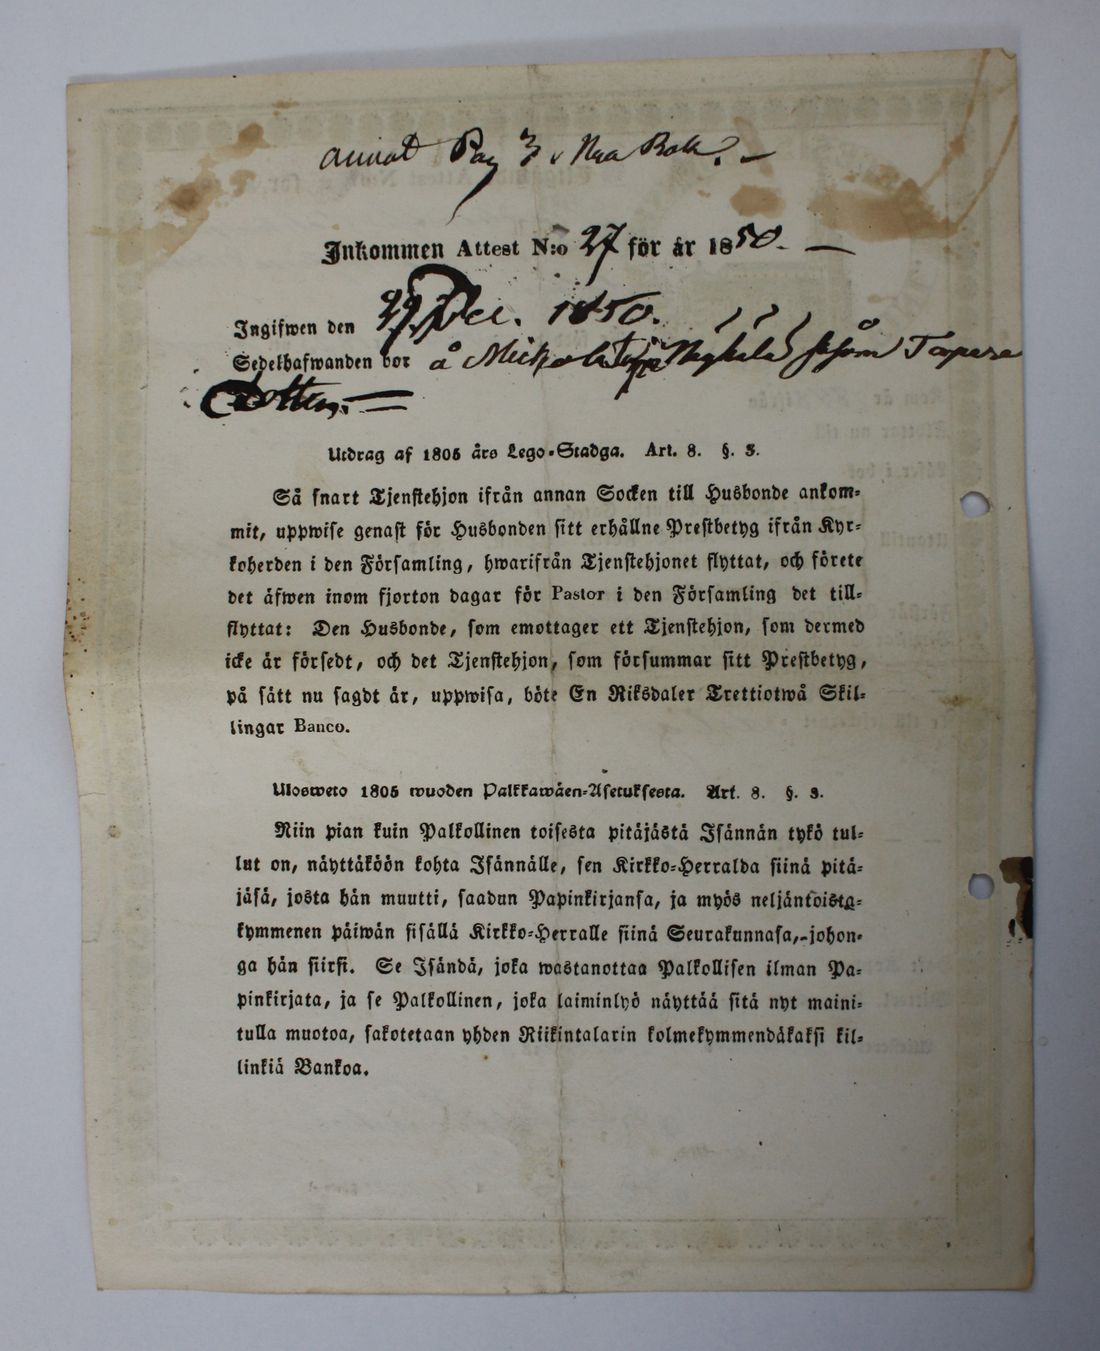 Pag 3
Inkommen Attest N:o 27 för år 1850.
Ingifwen den 29 Dec. 1850.
Sedelhafwanden bor å som
Utdrag af 1805 års Lego-Stadga. Art. 8. §. 3.
Så snart Tjenstehjon ifrån annan Socken till Husbonde ankom-
mit, uppwise genast för Husbonden sitt erhållne Prestbetyg ifrån Kyr-
koherden i den Församling, hwarifrån Tjenstehjonet flyttat, och förete
det äfwen inom fjorton dagar för Pastor i den Församling det till-
flyttat: Den Husbonde, som emottager ett Tjenstehjon, som dermed
icke är försedt, och det Tjenstehjon, som försummar sitt Prestbetyg,
på sätt nu sagdt är, uppwisa, böte En Riksdaler Trettiotwå Skil-
lingar Banco.
Ulosweto 1805 wuoden Palkkawäen-Asetuksesta. Art. 8. §. 3.
Niin pian kuin Palkollinen toisesta pitäjästä Isännän tykö tul-
lut on, näyttäköön kohta Isännälle, sen Kirkko-Herralda siinä pitä-
jäsä, josta hän muutti, saadun Papinkirjansa, ja myös neljäntoista-
kymmenen päiwän sisällä Kirkko-Herralle siinä Seurakunnasa, johon-
ga hän siirsi. Se Isändä, joka wastanottaa Palkollisen ilman Pa-
pinkirjata, ja se Palkollinen, joka laiminlyö näyttää sitä nyt maini-
tulla muotoa, sakotetaan yhden Riikintalarin kolmekymmendäkaksi kil-
linkiä Bankoa.